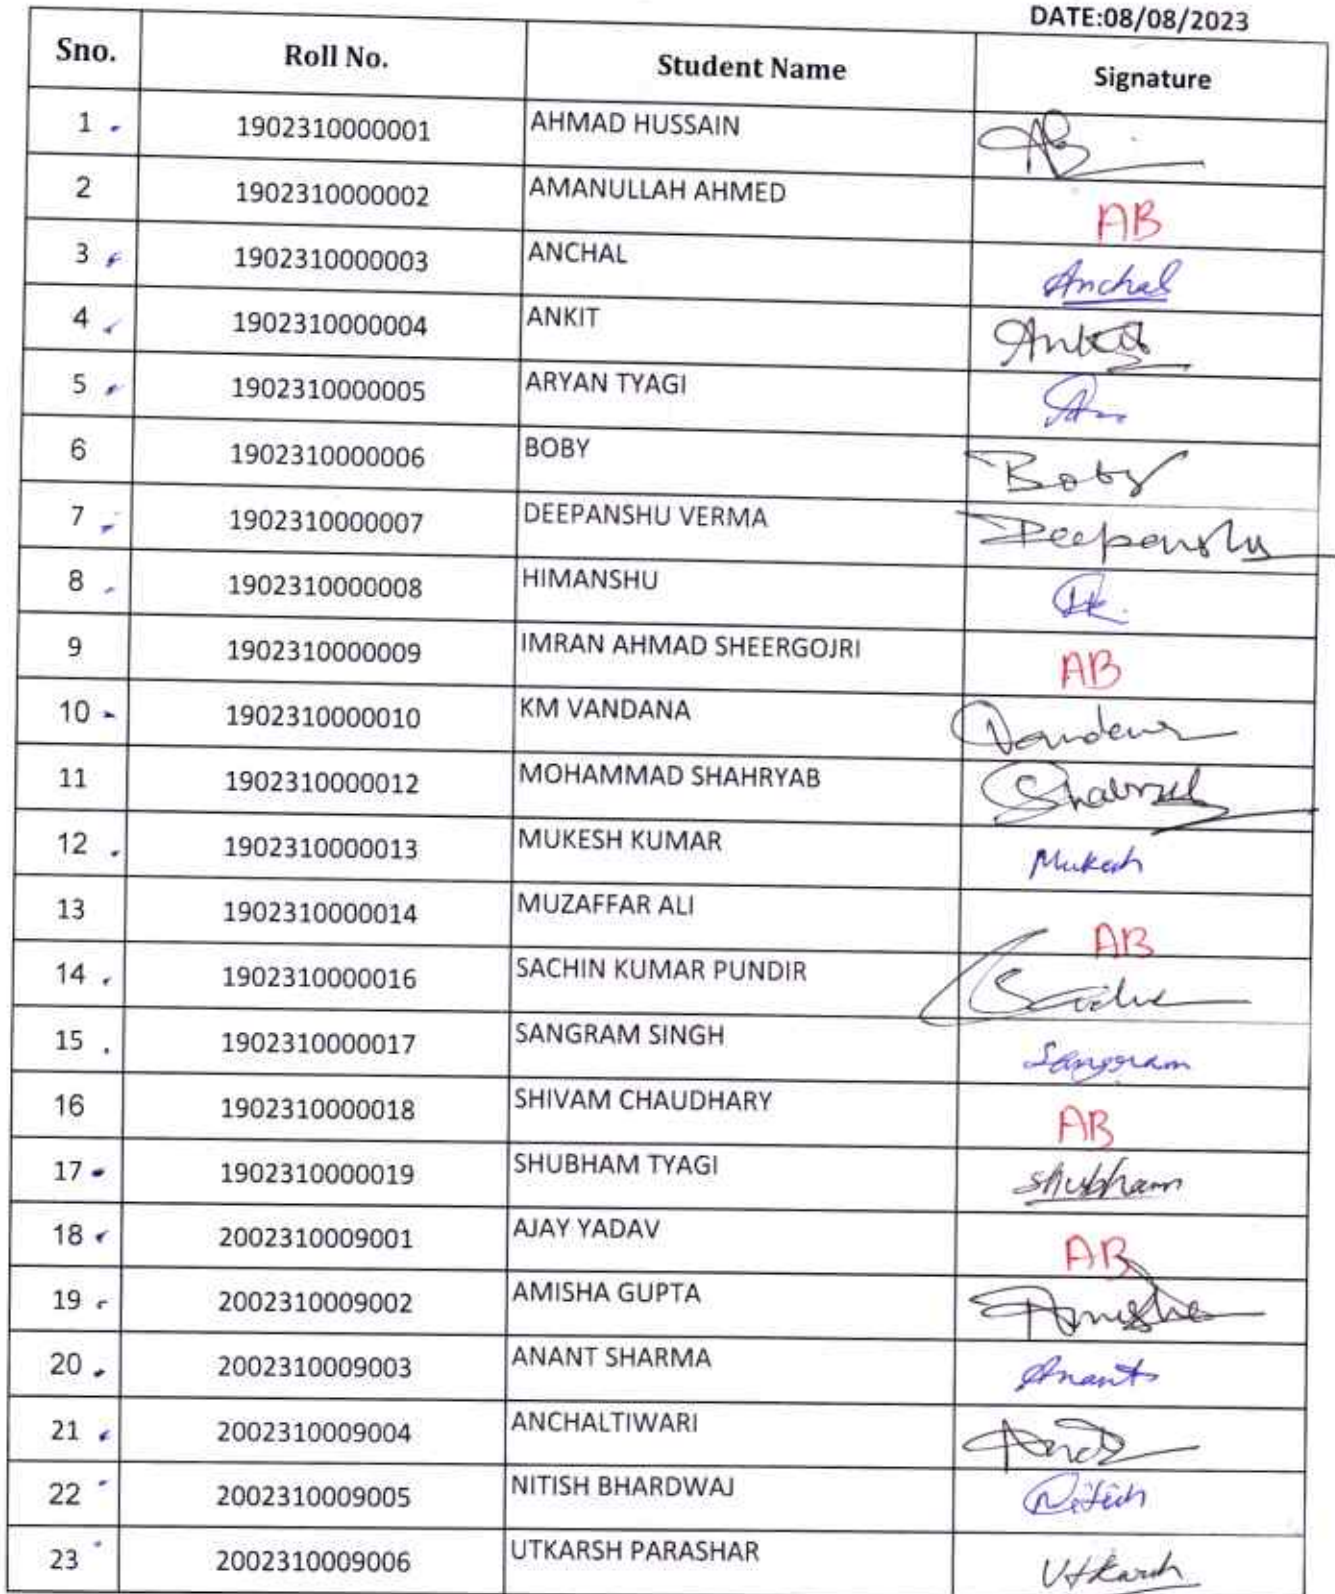 DATE:08/08/2023
Sno. Roll No. Student Name Signature
1 1902310000001 AHMAD HUSSAIN
2 1902310000002 AMANULLAH AHMED AB
3 1902310000003 ANCHAL Anchal
4 1902310000004 ANKIT Ankit
5 1902310000005 ARYAN TYAGI
6 1902310000006 BOBY Boby
7 1902310000007 DEEPANSHU VERMA Deepanshu
8 1902310000008 HIMANSHU
9 1902310000009 IMRAN AHMAD SHEERGOJRI AB
10 1902310000010 KM VANDANA
11 1902310000012 MOHAMMAD SHAHRYAB
12 1902310000013 MUKESH KUMAR Mukesh
13 1902310000014 MUZAFFAR ALI AB
14 1902310000016 SACHIN KUMAR PUNDIR
15 1902310000017 SANGRAM SINGH Sangram
16 1902310000018 SHIVAM CHAUDHARY AB
17 1902310000019 SHUBHAM TYAGI Shubham
18 2002310009001 AJAY YADAV AB
19 2002310009002 AMISHA GUPTA Amisha
20 2002310009003 ANANT SHARMA Anant
21 2002310009004 ANCHALTIWARI
22 2002310009005 NITISH BHARDWAJ Nitish
23 2002310009006 UTKARSH PARASHAR Utkarsh